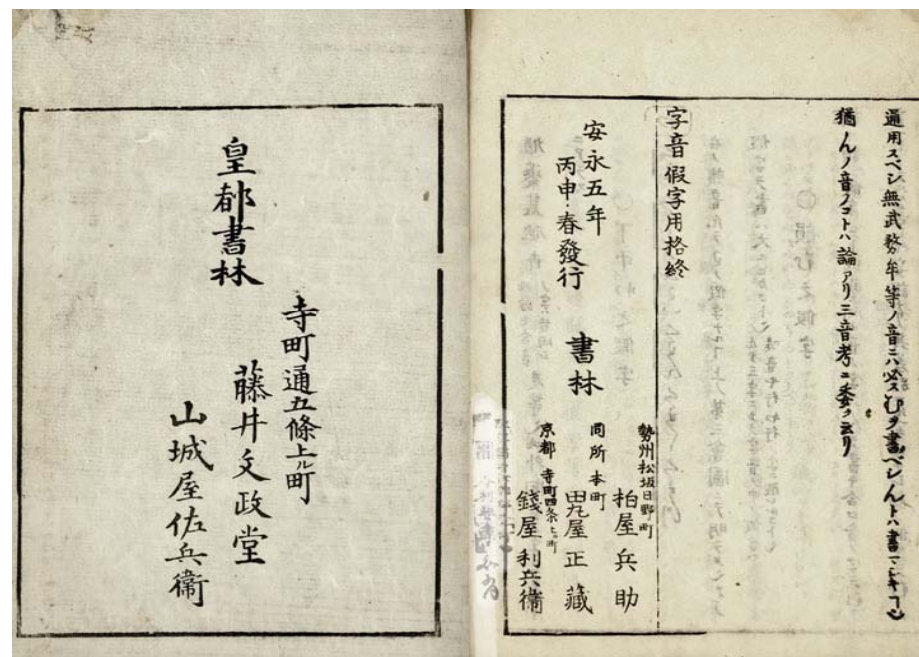 通用スベシ無武務牟等ノ音ニハ必スむヲ書ベシんトハ書マシキ
猶んノ音ノコトハ論アリ三音考ニ委ク云リ
字音假字用格終
安永五年
丙申春發行
書林
勢州松坂日野町
柏屋兵助
同所本町
田丸屋正藏
京都寺町四条上ル町
錢屋利兵衞
皇都書林
寺町通五條上ル町
藤井文政堂
山城屋佐兵衞